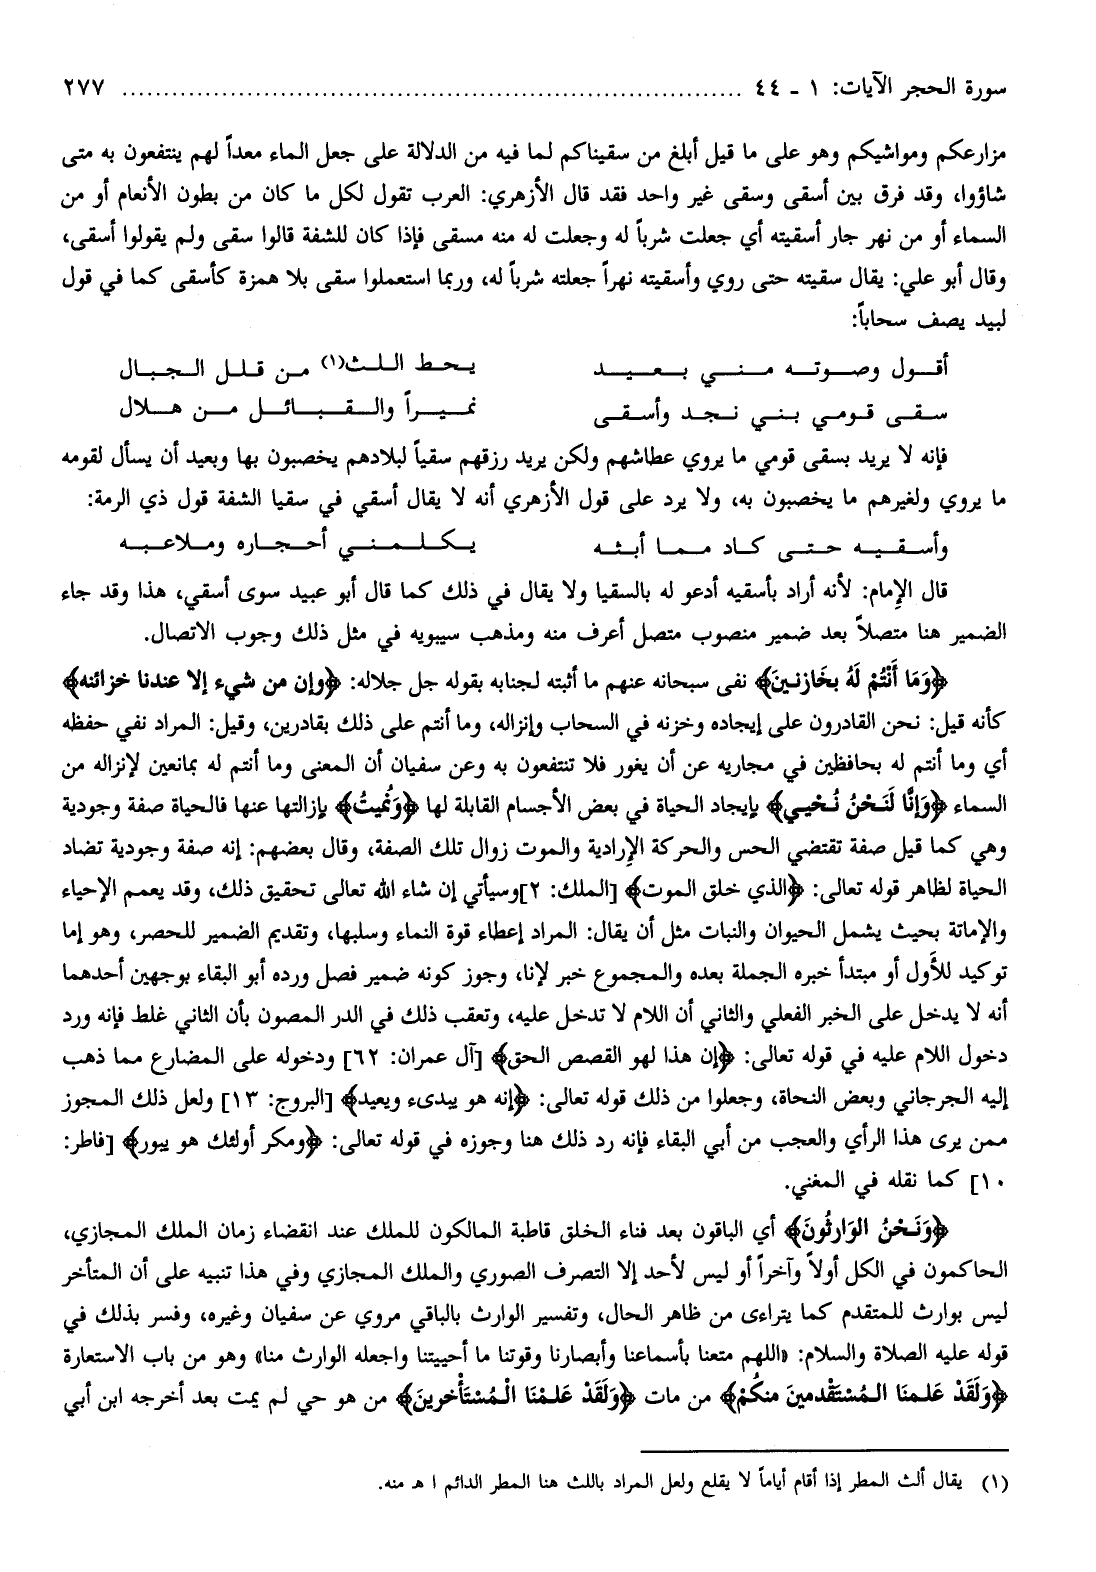 سورة الحجر الآيات: ١ ـ ٤٤ ........................................................................... ٢٧٧
مزارعكم ومواشيكم وهو على ما قيل أبلغ من سقيناكم لما فيه من الدلالة على جعل الماء معداً لهم ينتفعون به متى
شاؤوا، وقد فرق بين أسقى وسقى غير واحد فقد قال الأزهري: العرب تقول لكل ما كان من بطون الأنعام أو من
السماء أو من نهر جار أسقيته أي جعلت شرباً له وجعلت له منه مسقى فإذا كان للشفة قالوا سقى ولم يقولوا أسقى،
وقال أبو علي: يقال سقيته حتى روي وأسقيته نهراً جعلته شرباً له، وربما استعملوا سقى بلا همزة كأسقى كما في قول
لبيد يصف سحاباً:
أقول وصوته مني بعيد يحط اللث(١) من قلل الجبال
سقى قومي بني نجد وأسقى نميراً والقبائل من هلال
فإنه لا يريد بسقى قومي ما يروي عطاشهم ولكن يريد رزقهم سقياً لبلادهم يخصبون بها وبعيد أن يسأل لقومه
ما يروي ولغيرهم ما يخصبون به، ولا يرد على قول الأزهري أنه لا يقال أسقي في سقيا الشفة قول ذي الرمة:
وأسقيه حتى كاد مما أبثه يكلمني أحجاره وملاعبه
قال الإمام: لأنه أراد بأسقيه أدعو له بالسقيا ولا يقال في ذلك كما قال أبو عبيد سوى أسقي، هذا وقد جاء
الضمير هنا متصلاً بعد ضمير منصوب متصل أعرف منه ومذهب سيبويه في مثل ذلك وجوب الاتصال.
﴿وَمَا أَنْتُمْ لَهُ بِخَازِنِينَ﴾ نفى سبحانه عنهم ما أثبته لجنابه بقوله جل جلاله: ﴿وإن من شيء إلا عندنا خزائنه﴾
كأنه قيل: نحن القادرون على إيجاده وخزنه في السحاب وإنزاله، وما أنتم على ذلك بقادرين، وقيل: المراد نفي حفظه
أي وما أنتم له بحافظين في مجاريه عن أن يغور فلا تنتفعون به وعن سفيان أن المعنى وما أنتم له بمانعين لإنزاله من
السماء ﴿وَإِنَّا لَنَحْنُ نُحْيِي﴾ بإيجاد الحياة في بعض الأجسام القابلة لها ﴿وَنُمِيتُ﴾ بإزالتها عنها فالحياة صفة وجودية
وهي كما قيل صفة تقتضي الحس والحركة الإرادية والموت زوال تلك الصفة، وقال بعضهم: إنه صفة وجودية تضاد
الحياة لظاهر قوله تعالى: ﴿الذي خلق الموت﴾ [الملك: ٢]وسيأتي إن شاء الله تعالى تحقيق ذلك، وقد يعمم الإحياء
والإماتة بحيث يشمل الحيوان والنبات مثل أن يقال: المراد إعطاء قوة النماء وسلبها، وتقديم الضمير للحصر، وهو إما
توكيد للأَول أو مبتدأ خبره الجملة بعده والمجموع خبر لإنا، وجوز كونه ضمير فصل ورده أبو البقاء بوجهين أحدهما
أنه لا يدخل على الخبر الفعلي والثاني أن اللام لا تدخل عليه، وتعقب ذلك في الدر المصون بأن الثاني غلط فإنه ورد
دخول اللام عليه في قوله تعالى: ﴿إن هذا لهو القصص الحق﴾ [آل عمران: ٦٢] ودخوله على المضارع مما ذهب
إليه الجرجاني وبعض النحاة، وجعلوا من ذلك قوله تعالى: ﴿إنه هو يبدىء ويعيد﴾ [البروج: ١٣] ولعل ذلك المجوز
ممن يرى هذا الرأي والعجب من أبي البقاء فإنه رد ذلك هنا وجوزه في قوله تعالى: ﴿ومكر أولئك هو يبور﴾ [فاطر:
١٠] كما نقله في المغني.
﴿وَنَحْنُ الوَارِثُونَ﴾ أي الباقون بعد فناء الخلق قاطبة المالكون للملك عند انقضاء زمان الملك المجازي،
الحاكمون في الكل أولاً وآخراً أو ليس لأحد إلا التصرف الصوري والملك المجازي وفي هذا تنبيه على أن المتأخر
ليس بوارث للمتقدم كما يتراءى من ظاهر الحال، وتفسير الوارث بالباقي مروي عن سفيان وغيره، وفسر بذلك في
قوله عليه الصلاة والسلام: «اللهم متعنا بأسماعنا وأبصارنا وقوتنا ما أحييتنا واجعله الوارث منا» وهو من باب الاستعارة
﴿وَلَقَدْ عَلِمنَا المُسْتَقْدمينَ منكُمْ﴾ من مات ﴿وَلَقَدْ عَلِمْنَا الْمُسْتَأْخرينَ﴾ من هو حي لم يمت بعد أخرجه ابن أبي
(١) يقال ألث المطر إذا أقام أياماً لا يقلع ولعل المراد باللث هنا المطر الدائم ا هـ منه.